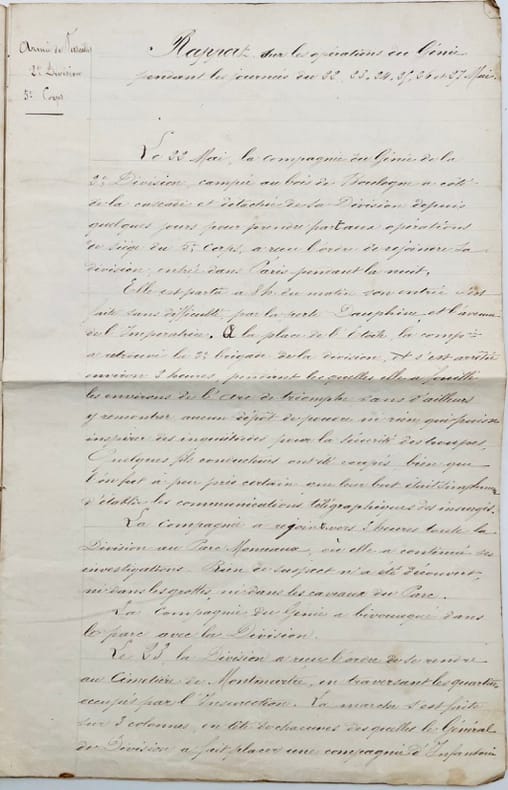 Armée de Versailles
2e Division
5e Corps
Rapport sur les opérations du Génie
pendant les journées du 22, 23, 24, 25, 26 et 27 Mai.
Le 22 Mai, la compagnie du Génie de la
2e Division, campée au bois de Boulogne à côté
de la cascade et détachée de sa Division depuis
quelques jours pour prendre part aux opérations
de siège du 5e Corps, a reçu l'ordre de rejoindre sa
division, entrée dans Paris pendant la nuit.
Elle est partie à 8h du matin son entrée s'est
faite sans difficulté par la porte Dauphine et l'avenue
de l'Impératrice. A la place de l'Etoile, la compie
a retrouvé la 2e brigade de la division, et s'est arrêtée
environ 3 heures, pendant lesquelles elle a fouillé
les environs de l'arc de triomphe sans d'ailleurs
y rencontrer aucun dépôt de poudre ni rien qui puisse
inspirer des inquiétudes pour la sécurité des troupes.
Quelques fils conducteurs ont été coupés bien que
l'on fut à peu près certain que leur but était simplement
d'établir les communications télégraphiques des insurgés.
La compagnie a rejoint vers 2 heures toute la
Division au Parc Monceaux, où elle a continué ses
investigations. Rien de suspect n'a été découvert,
ni dans les grottes, ni dans les caveaux du Parc.
La compagnie du Génie a bivouaqué dans
le parc avec la Division.
Le 23, la Division a reçu l'ordre de se rendre
au Cimetière de Montmartre, en traversant les quartiers
occupés par l'Insurrection. La marche s'est faite
sur 3 colonnes, en tête de chacune desquelles le Général
de Division a fait placer une compagnie d'Infanterie